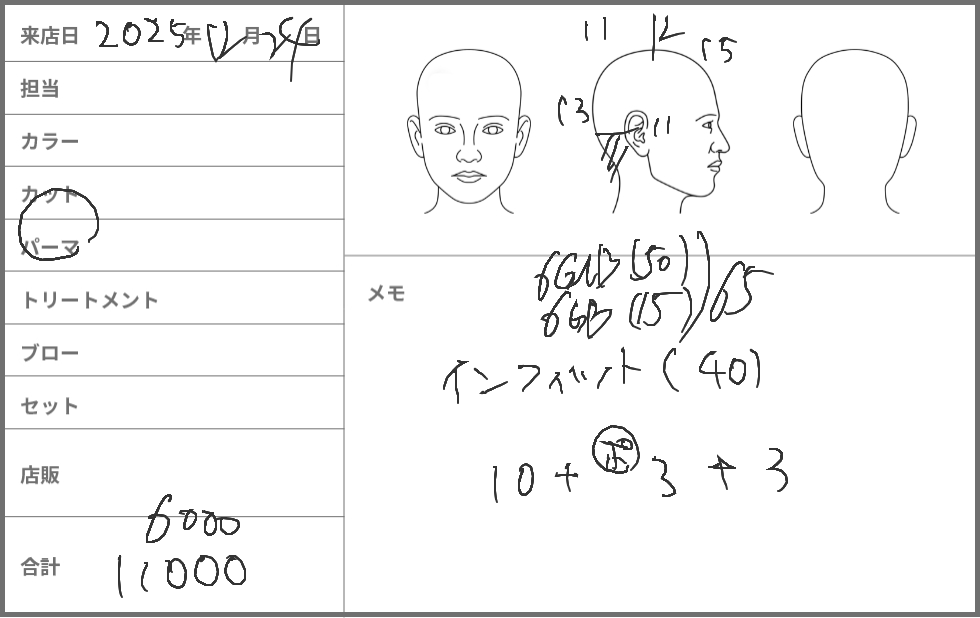 来店日 2025年12月24日
担当
カラー
カット
パーマ
トリートメント
ブロー
セット
店販
6000
合計 11000
11 12 15
13 11
メモ
6GNB (50)
6GB (15) 65
インフィット (40)
10 + ポ 3 + 3